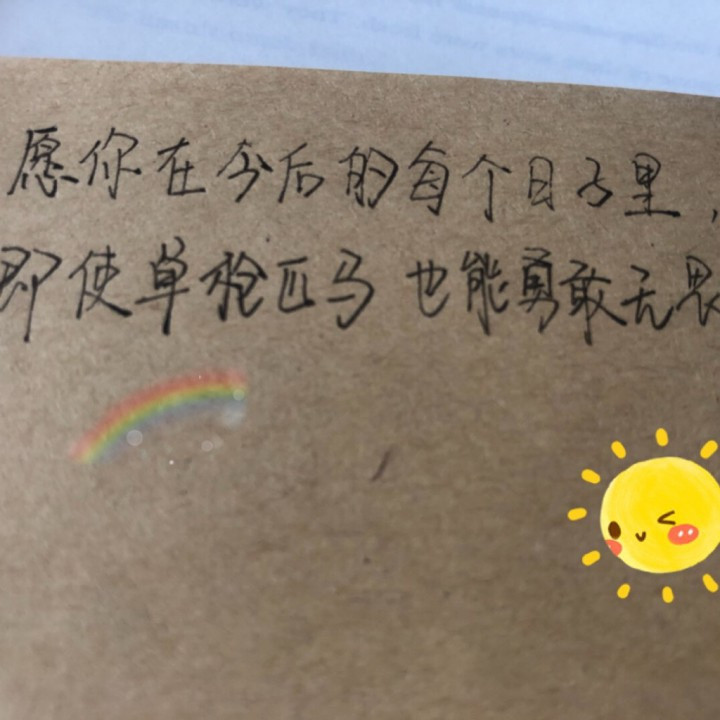 愿你在今后的每个日子里，
即使单枪匹马 也能勇敢无畏